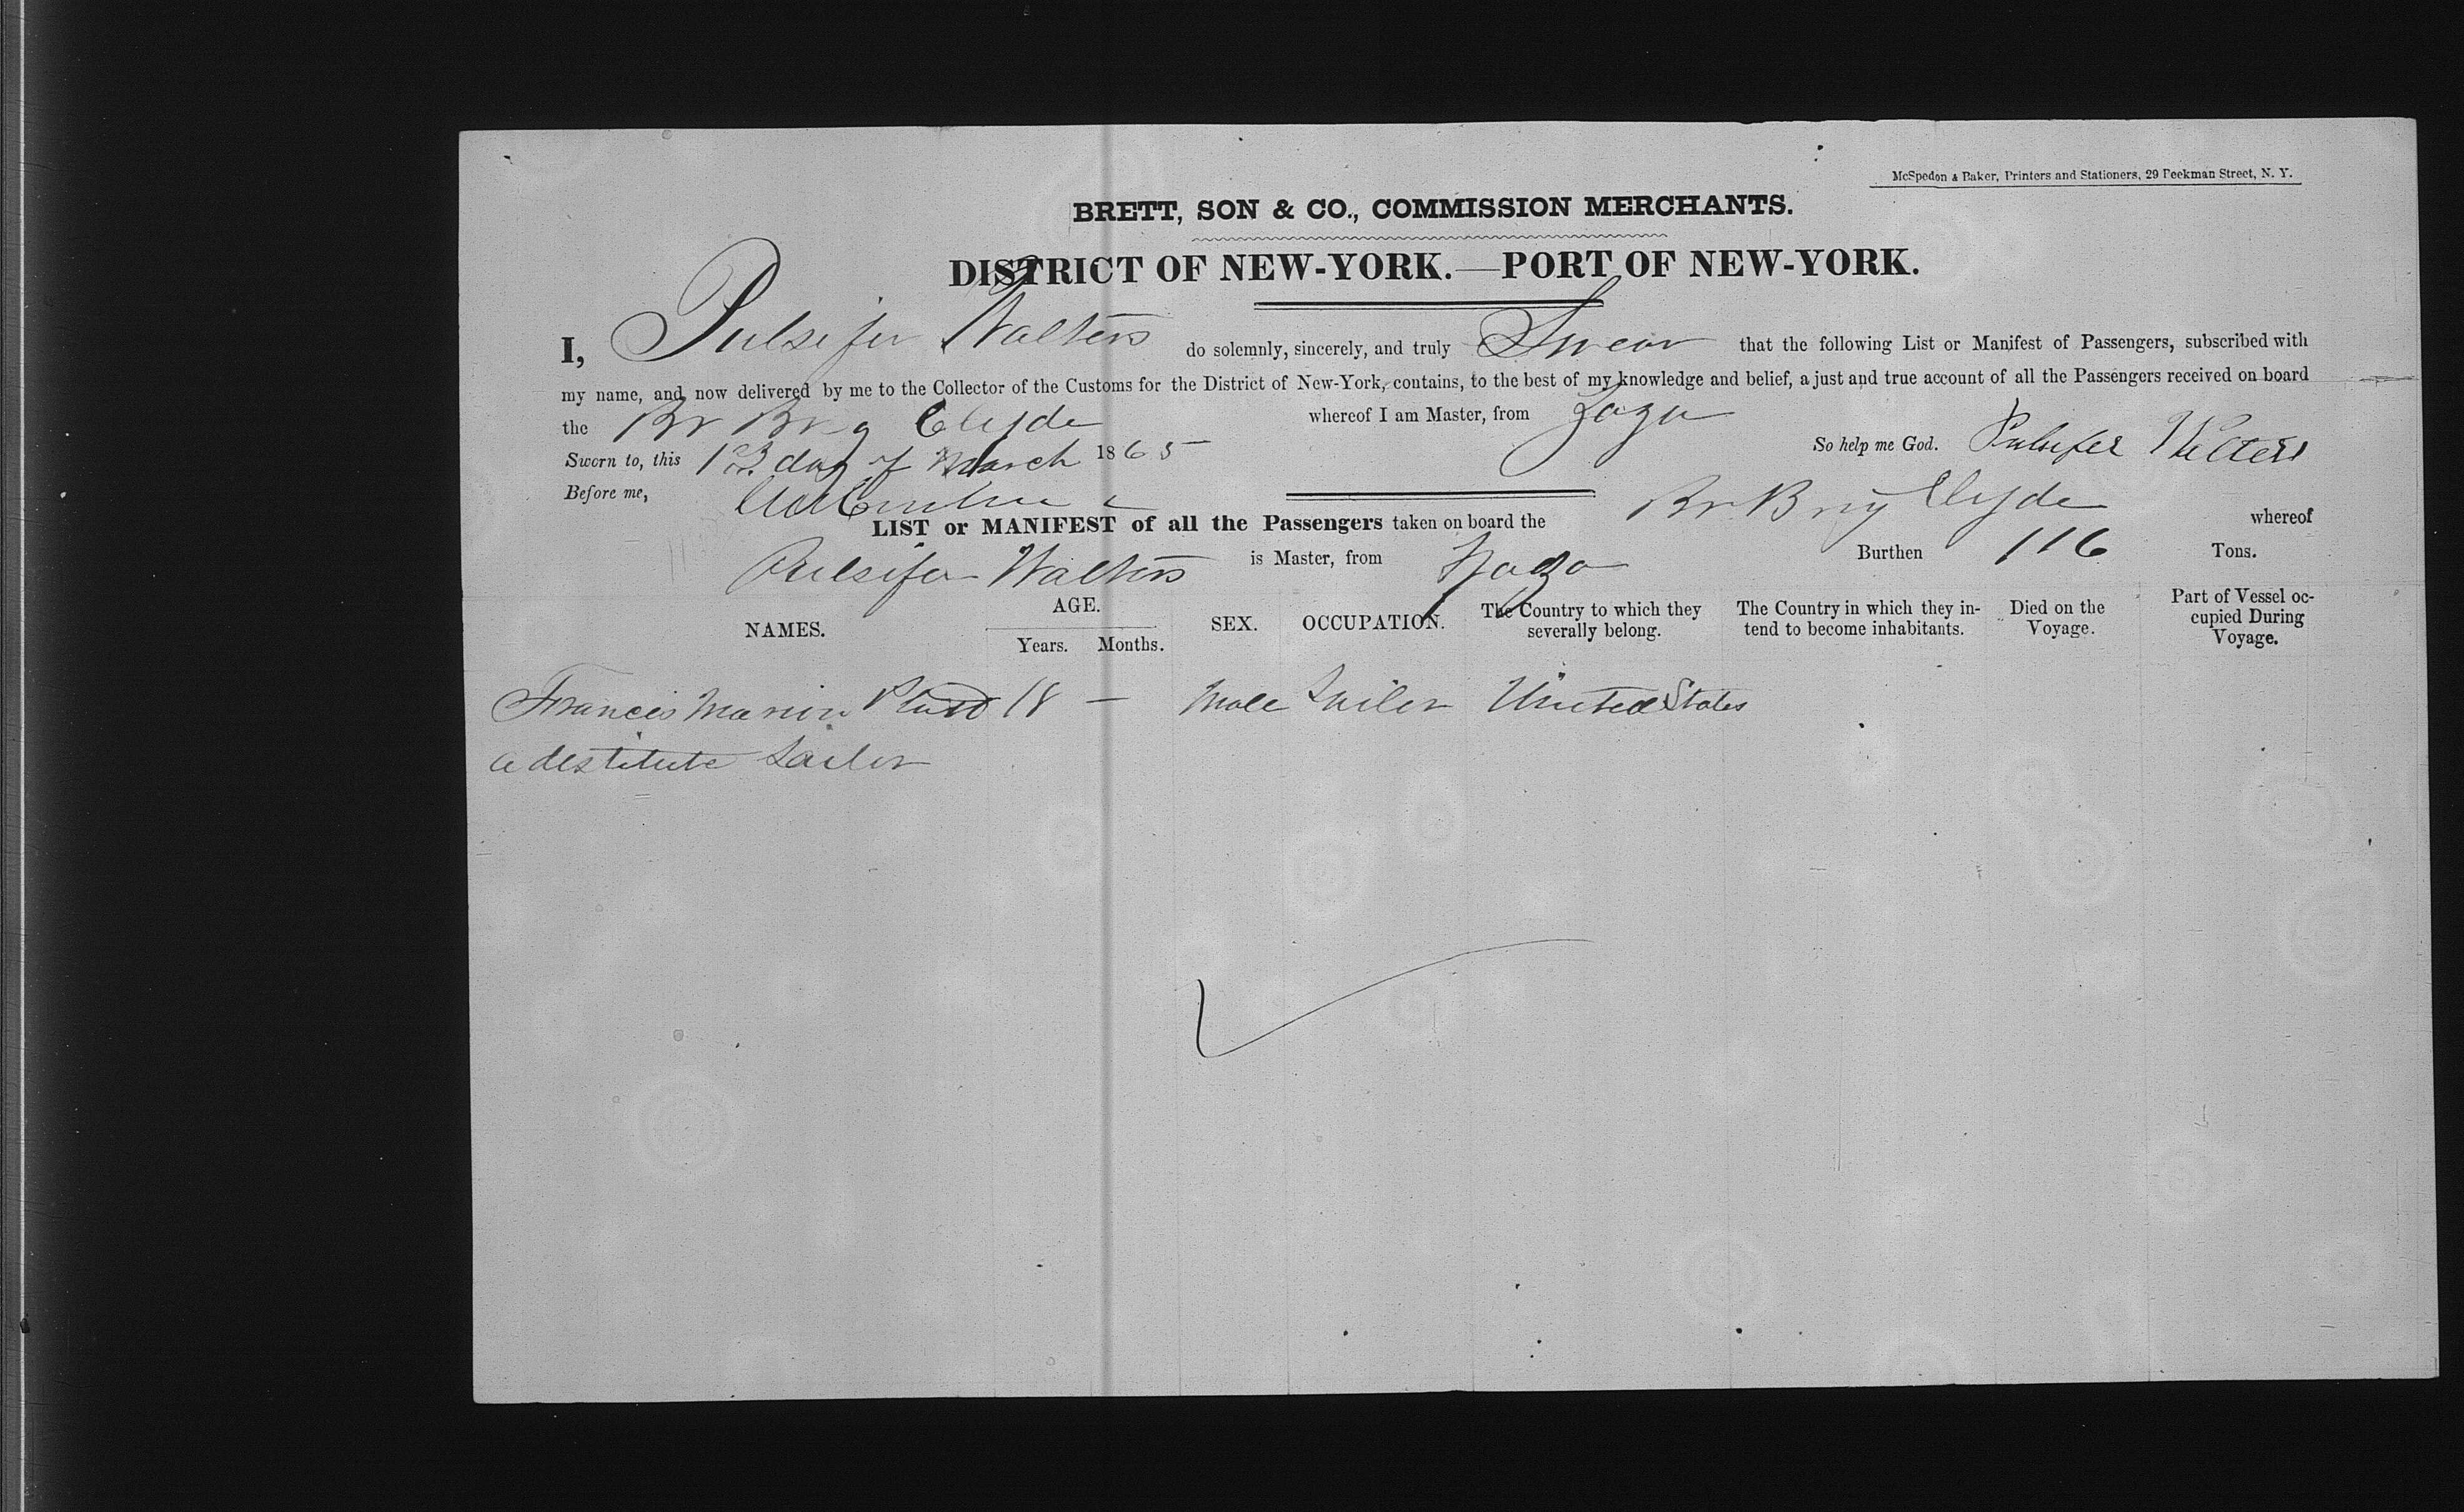 McSpedon & Baker, Printers and Stationers, 29 Beekman Street, N. Y.
BRETT, SON & CO., COMMISSION MERCHANTS.
DISTRICT OF NEW-YORK.—PORT OF NEW-YORK.
I, Pulsifer Walters do solemnly, sincerely, and truly Swear that the following List or Manifest of Passengers, subscribed with
my name, and now delivered by me to the Collector of the Customs for the District of New-York, contains, to the best of my knowledge and belief, a just and true account of all the Passengers received on board
the Br Brig Clyde whereof I am Master, from
Sworn to, this 13 day of March 1865 So help me God. Pulsifer Walters
Before me,
LIST or MANIFEST of all the Passengers taken on board the Br Brig Clyde whereof
Pulsifer Walters is Master, from Burthen 116 Tons.
NAMES. AGE. Years. Months. SEX. OCCUPATION. The Country to which they severally belong. The Country in which they intend to become inhabitants. Died on the Voyage. Part of Vessel occupied During Voyage.
Francis Marion 18 — Male Sailor United States
a destitute Sailor